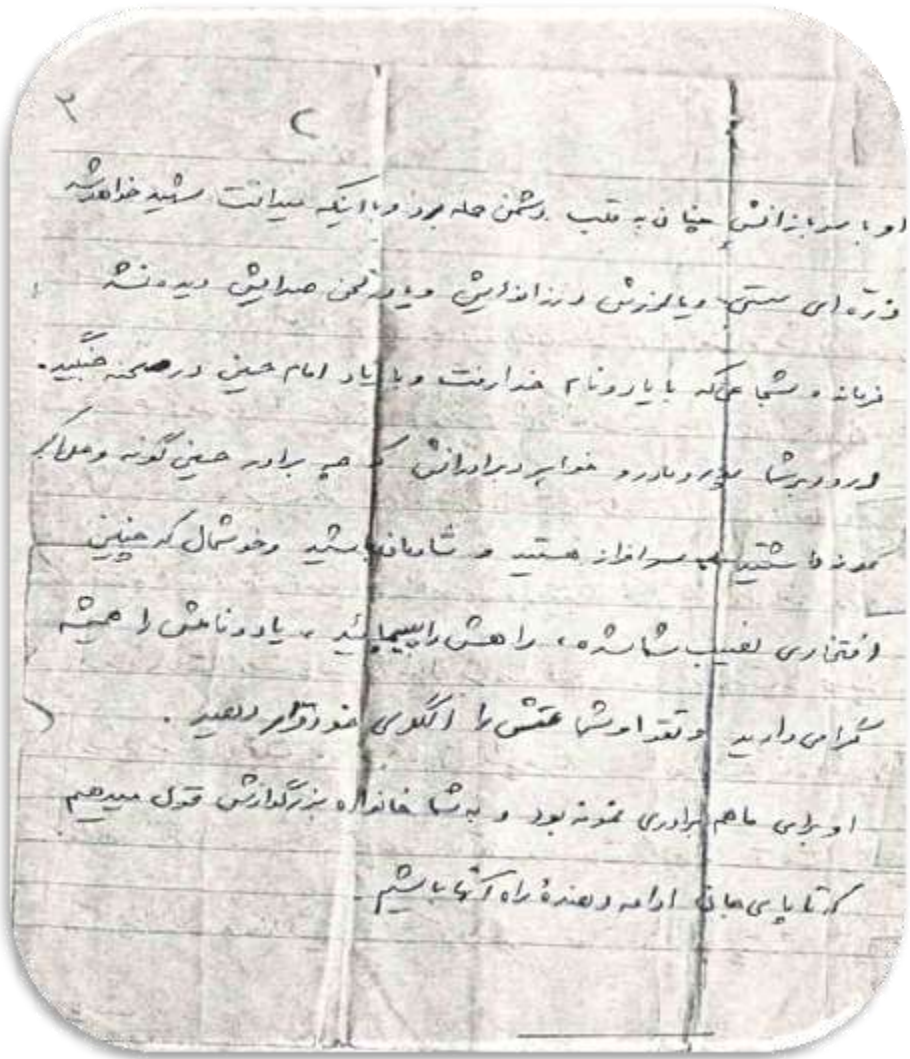 ۲
او با سربازانش چنان به قلب دشمن حمله برد و با اینکه میدانست شهید خواهد شد
ذره‌ای سستی ویا لرزش در زانوانش ویا در لحن صدایش دیده نشد
فرمانده شجاعی که با یاد و نام خدا رفت و با یاد امام حسین در صحنه جنگید.
درود بر شما پدر و مادر و خواهر و برادرانش که چه برادر حسین گونه و علی اکبر
گونه داشتید سرافراز هستید و شادمان باشید و خوشحال که چنین
افتخاری نصیب شما شده، راهش را بپیمائید، یاد و نامش را همیشه
گرامی دارید و تقوا و شجاعتش را الگوی خود قرار دهید.
او برای ما هم برادری نمونه بود و به شما خانواده بزرگوارش قول میدهیم
که تا پای جان ادامه دهندهٔ راه آنها باشیم.